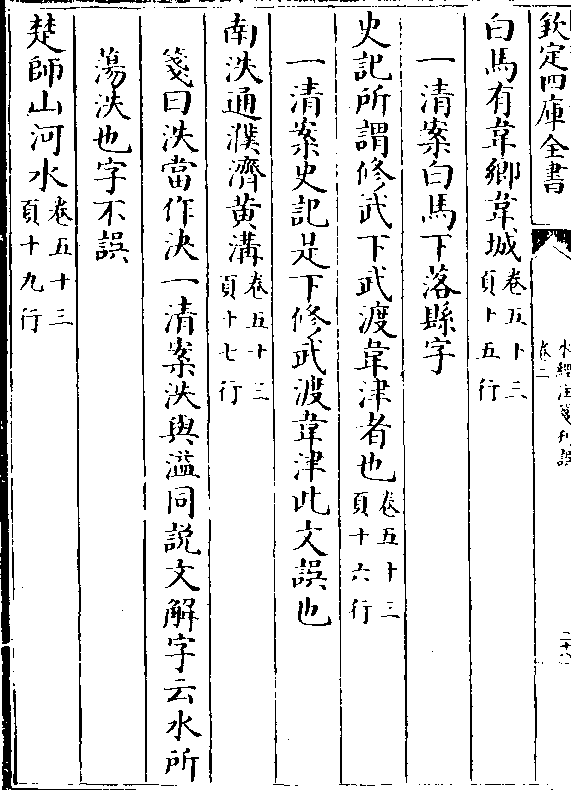 欽定四庫全書
水經注箋刊誤
卷二
白馬有韋鄉韋城卷五十三頁十五行
一清案白馬下落縣字
史記所謂修武下武渡韋津者也卷五十三頁十六行
一清案史記是下修武渡韋津此文誤也
南泆通濮濟黄溝卷五十三頁十七行
箋曰泆當作決一清案泆與溢同説文解字云水所
蕩泆也字不誤
楚師山河水卷五十三頁十九行